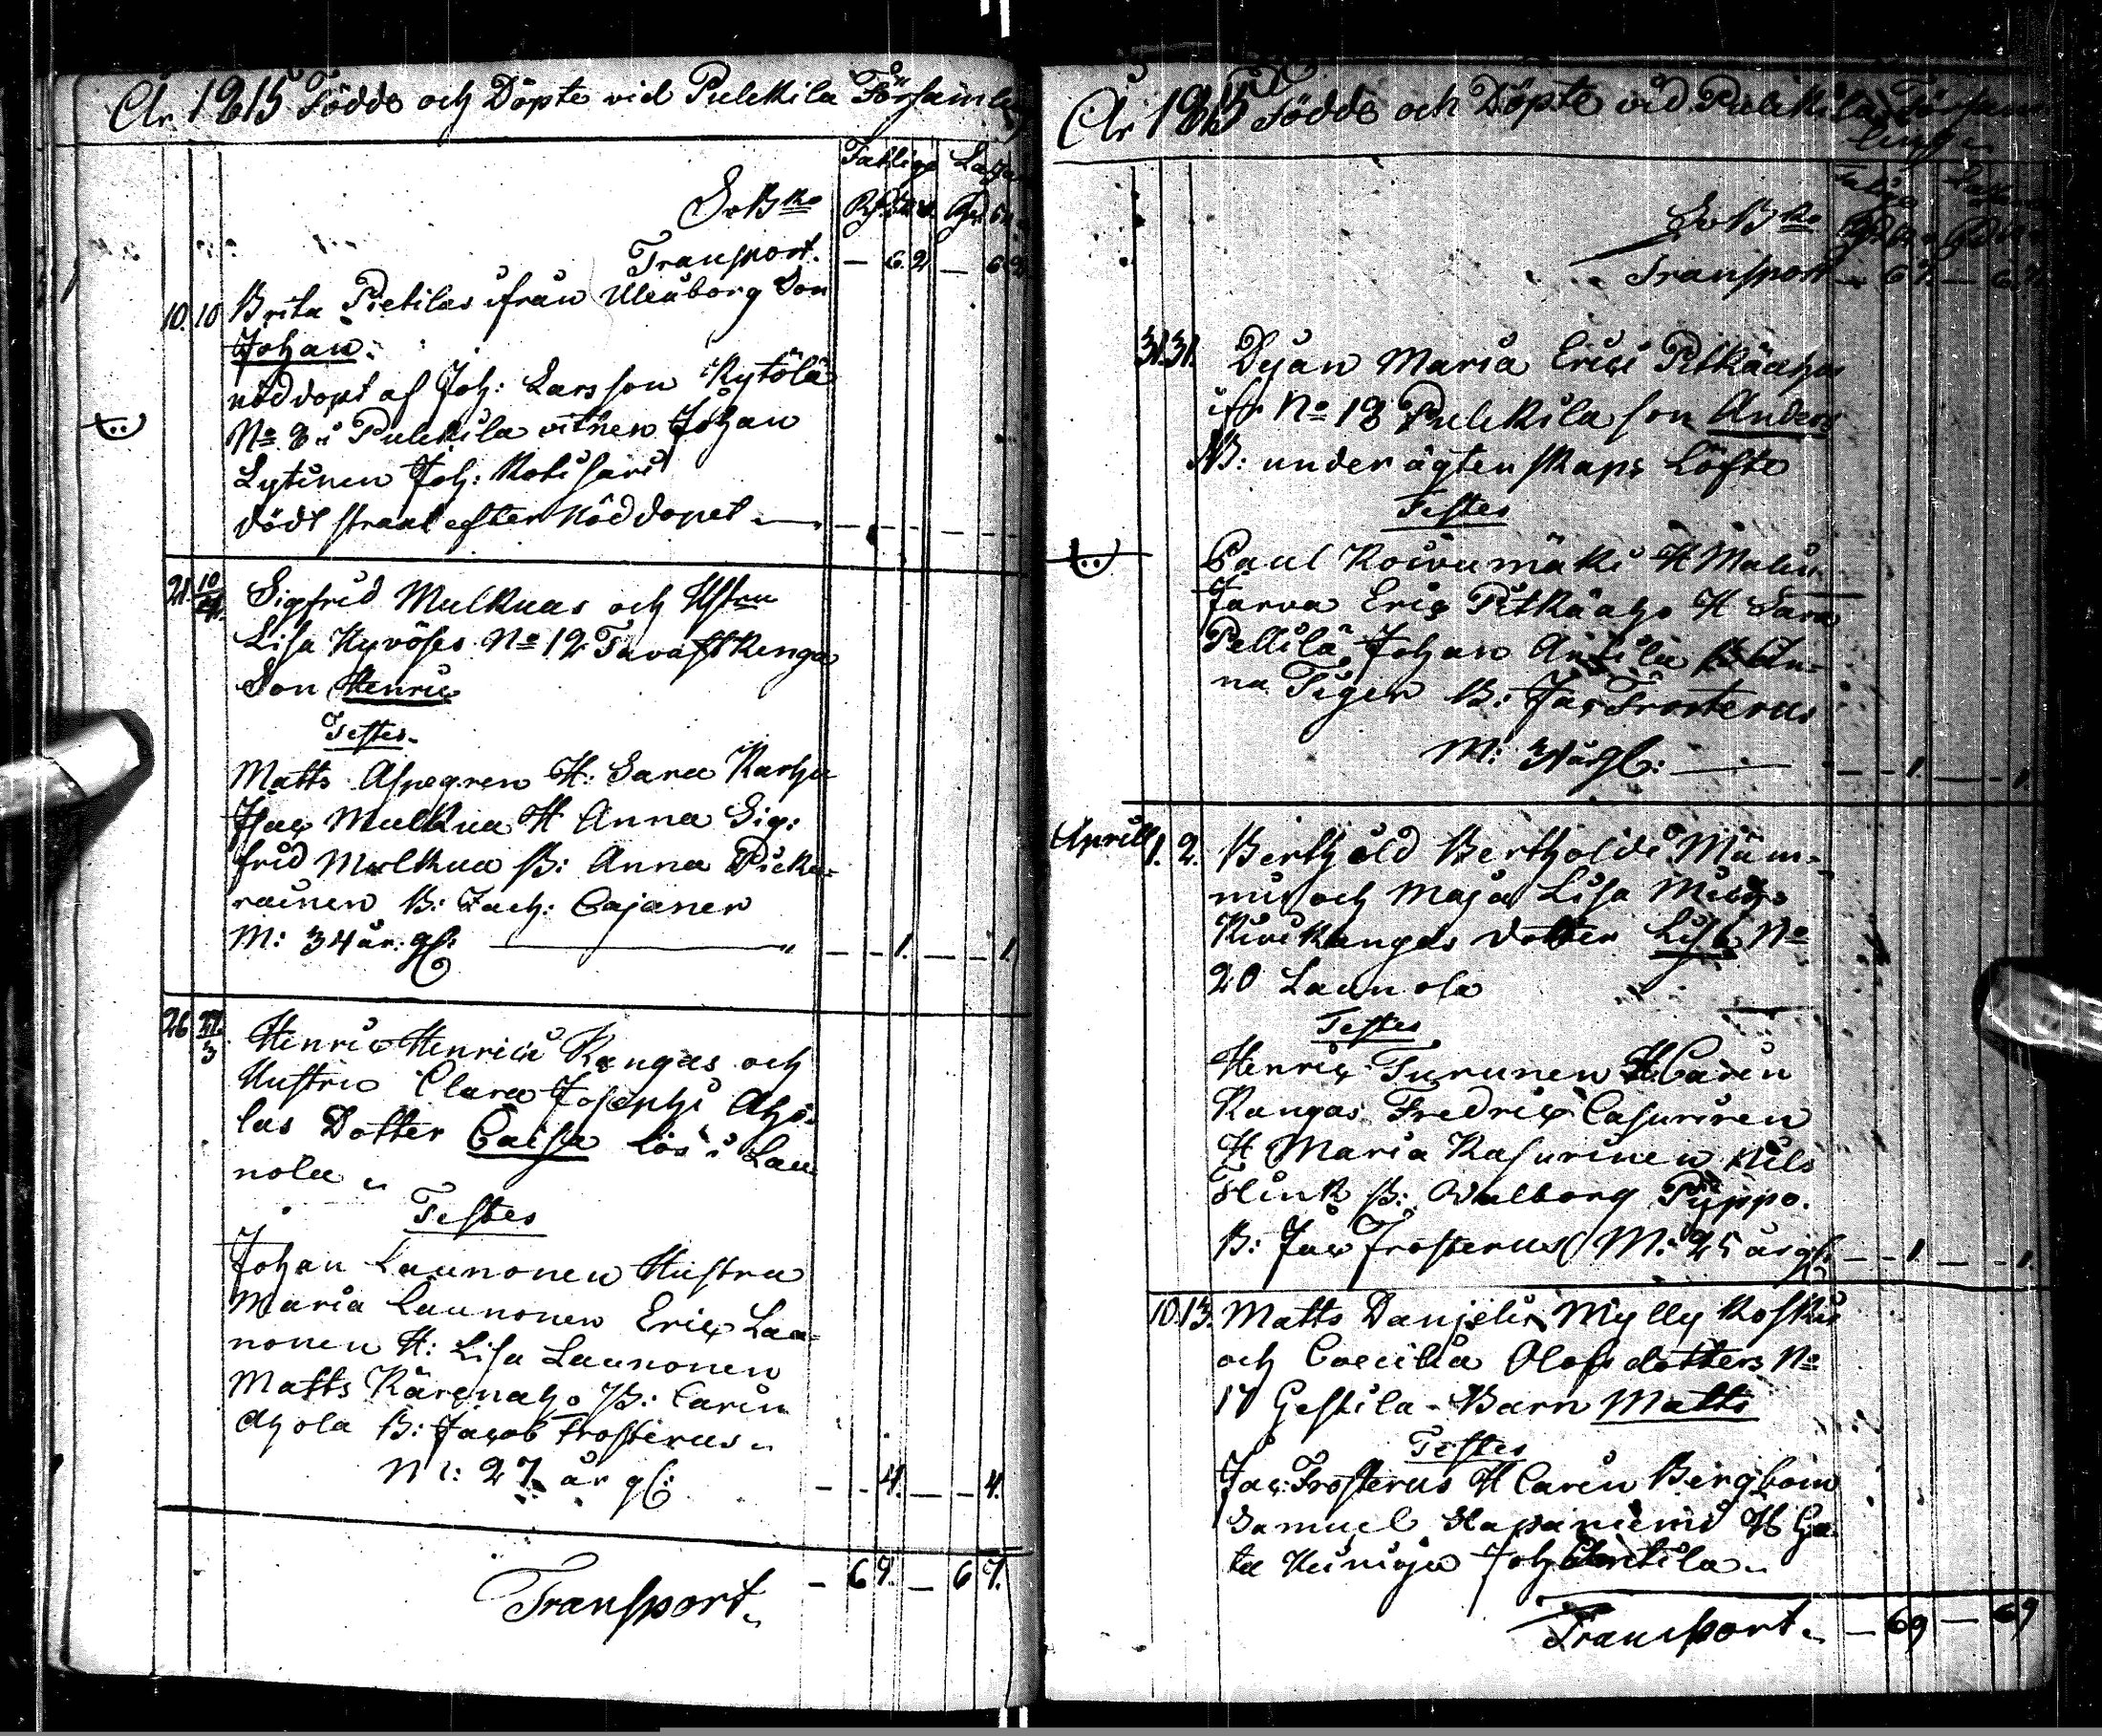 År 1815 Födde och Döpte vid Pulckila Församling
Fattige Cassa
Sv Bko
Transport. — 6. 2 — 6 2
10. 10 Brita Pietilas ifrån Uleåborg Son
Johan.
nöddöpt af Joh: Larsson Kytölä
No 8 i Pulckila vitnen Johan
Lytinen Joh: Kotisari
dödt straxt efter Nöddopet
21. Sigfrid Mulkuas och Hstru
Lisa Hyvöses No 12 Tavastkenga
Son Henric
Testes.
Matts Aspegren H: Sara Karhu
Isac Mulkua H Anna Sig:
frid Mulkua P: Anna Picka=
rainen B: Zach: Cajaner
M: 34 år. gl: — — 1. — — 1
26 27/3 Henric Henrici Kangas och
Hustru Clara Josephi Aho=
las Dotter Caisa lös i Lau
nola
Testes
Johan Launonen Hustru
Maria Launonen Eric Lau=
nonen H: Lisa Launonen
Matts Kärenaho P: Carin
Ahola B: Jacob Frosterus
M: 27 år gl: — - 4. — — 4.
Transport. — 6 7. — 6 7.
År 1815 Födde och Döpte vid Pulckila Försam
lingen
Sv Bko
Transport — 6 7. — 6 7.
31. 31. Drän Maria Erici Pitkäahos
ifr No 18 Pulckila son Anders
NB: under ägtenskaps Löfte
Testes
Paul Koivumäki H Malin
Jarva Eric Pitkäaho H Sara
Pellilä Johan Antila P: An=
na Tiger B: Jac Frosterus
M: 31 år gl: — — 1. — — 1.
Aprill 1. 2. Berthold Bertholdi Mäm=
mi och Maja Lisa
Kivikangas dotter Lisa No
20 Launola
Testes
Henric Turunen H Carin
Kangas Fredric Casurinen
H Maria Kasurinen Nils
Flink P: Walborg Pyppo.
B: Jac Frosterus M: 25 år gl: — — 1. — — 1.
10. 13. Matts Danjelis Mylly Koski
och Caecilia Olofsdotters No
17 Gestila - Barn Matts
Testes
Jac: Frosterus H Carin Bergbom
Samuel Hapaniemi H Ga
ta Joh Antila
Transport. — 69 — 69